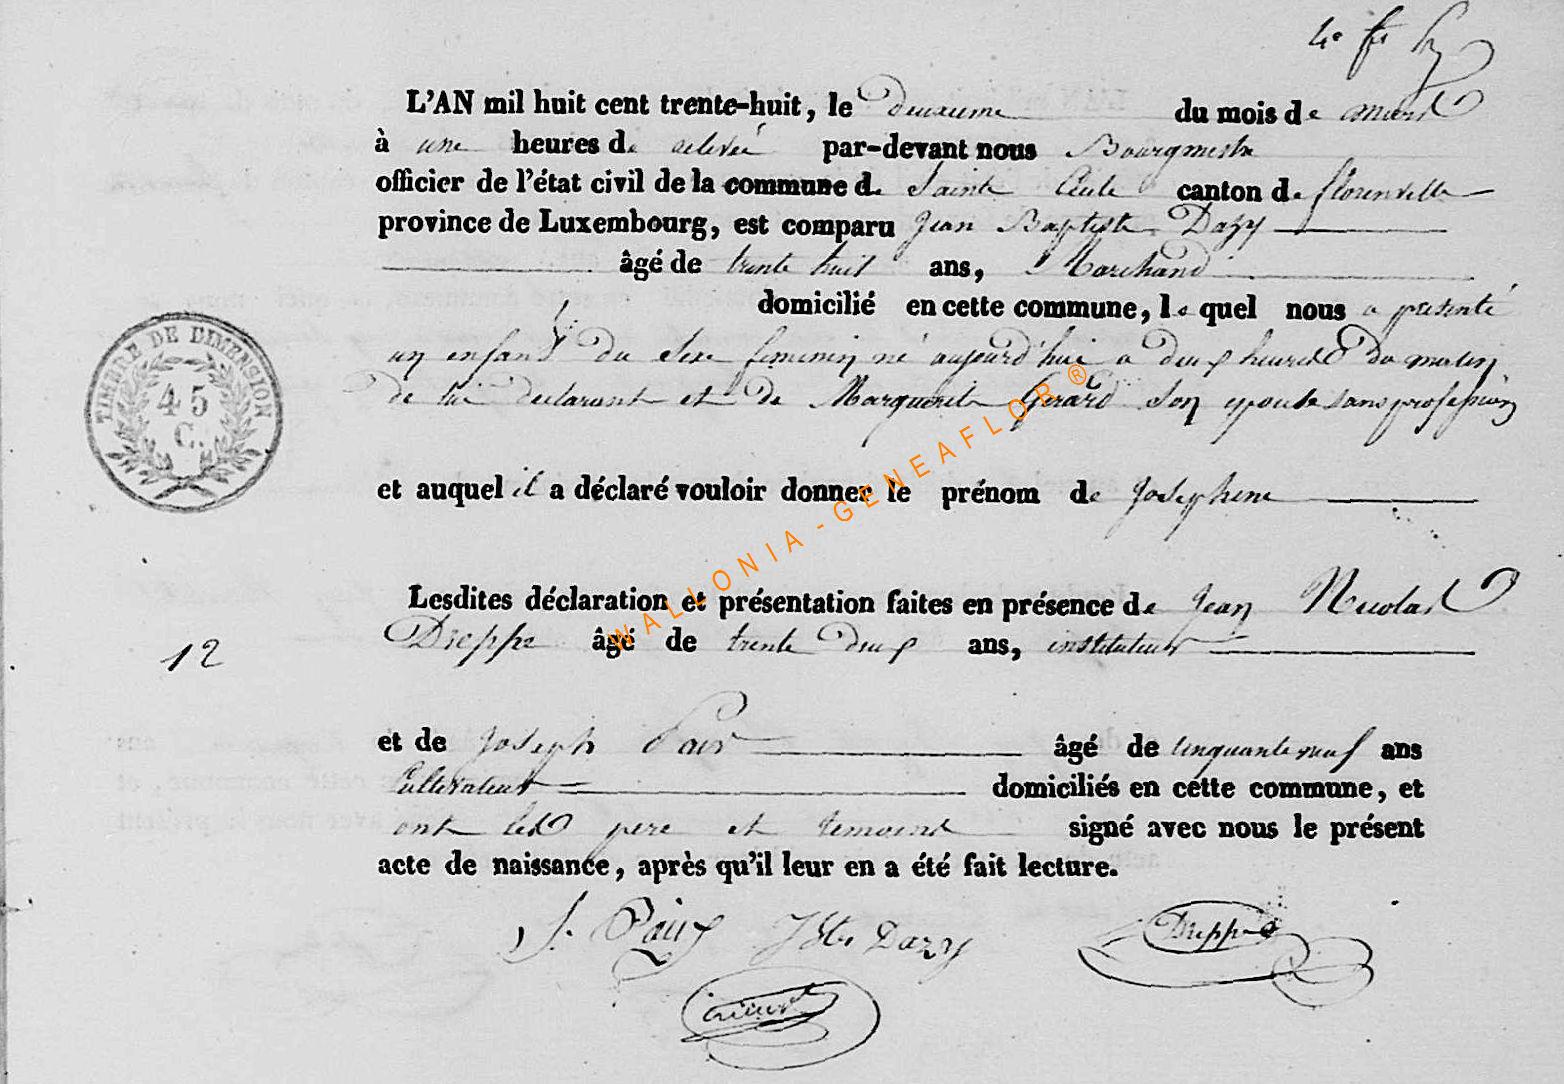 4e
L'AN mil huit cent trente-huit, le deuxieme du mois de mars
à une heures de relevée par-devant nous Bourgmestre
officier de l'état civil de la commune de Sainte Cecile canton de florenville
province de Luxembourg, est comparu Jean Baptiste Dazy
âgé de trente huit ans, Marchand
domicilié en cette commune, le quel nous a presenté
un enfant du sexe feminin né aujourd'hui a deux heures du matin
de lui declarant et de Marguerite Gérard son epouse sans profession
TIMBRE DE DIMENSION
45
C.
et auquel il a déclaré vouloir donner le prénom de Josephine
WALLONIA - GENEAFLOR ®
Lesdites déclaration et présentation faites en présence de Jean Nicolas
12
Dreppe âgé de trente deux ans, instituteur
et de Joseph âgé de cinquante neuf ans
Cultivateur domiciliés en cette commune, et
ont les pere et temoins signé avec nous le présent
acte de naissance, après qu'il leur en a été fait lecture.
J. Jbte Dazy Dreppe